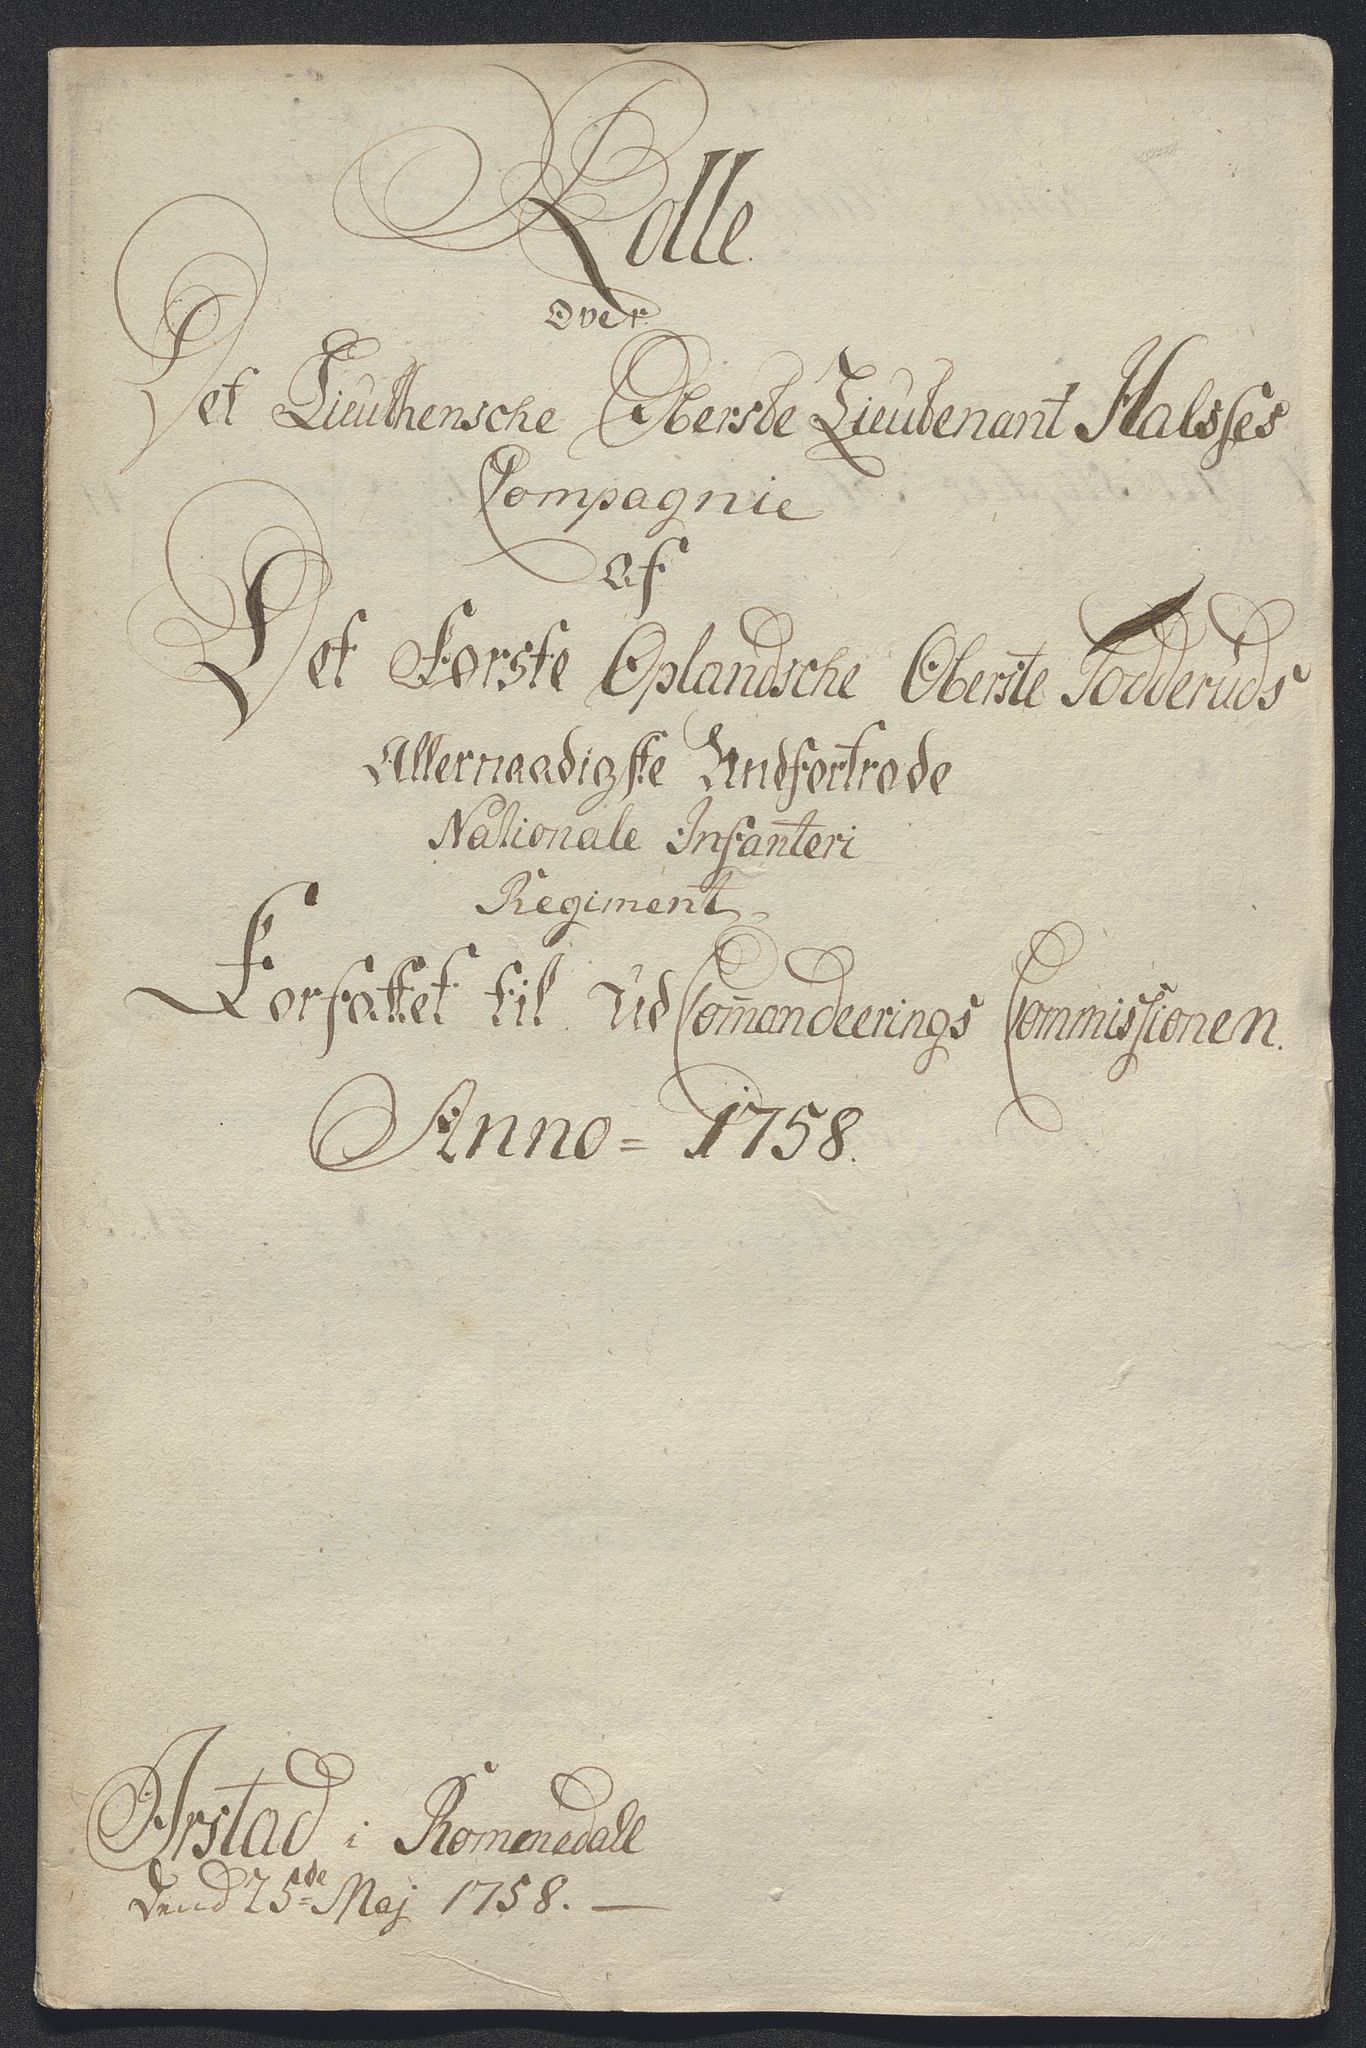 Rolle.
Over
Det Lieuthensche Oberste Lieutenant Halsses
Compagnie
af
Det Første Oplandsche Oberste Todderuds
Allernaadigste Andfortrode
Nationale Infanteri
Regiment
Forfattet til Ud Com̅andeerings Commissionen.
Anno = 1758.
Arstad i Rommedall
dend 25de Maj 1758. —